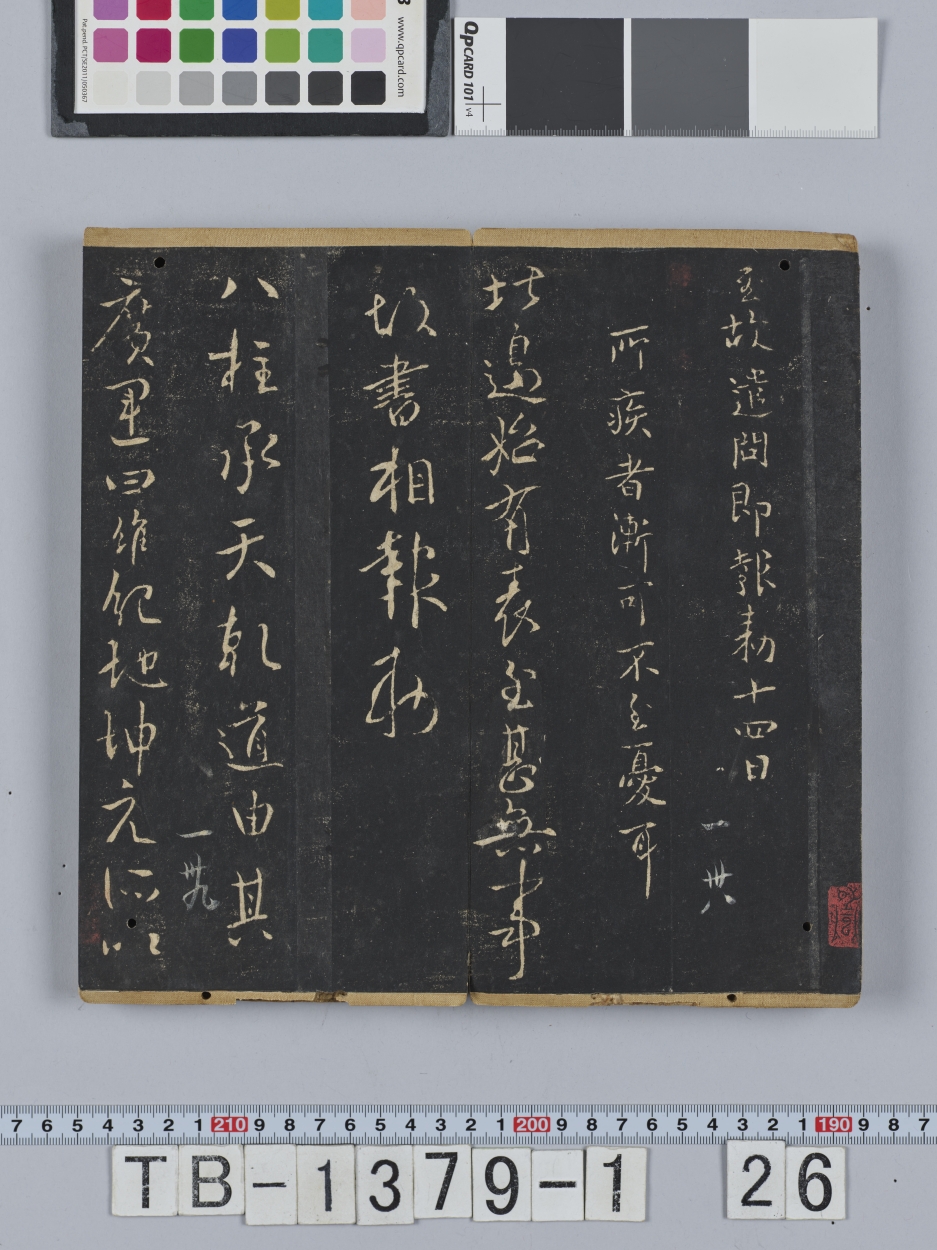 www.qpcard.com
Pat.pend. PCT/SE2011/050367
QPCARD 101 v4
至故遣問即報勅十四日
一 卅八
所疾者漸可不至憂耳
北邊始有表至甚無事
故書相報勅
八柱承天乾道由其
一 卅九
廣運四維紀地坤元所以
7 6 5 4 3 2 1 210 9 8 7 6 5 4 3 2 1 200 9 8 7 6 5 4 3 2 1 190 9 8 7
TB-1379-1 26